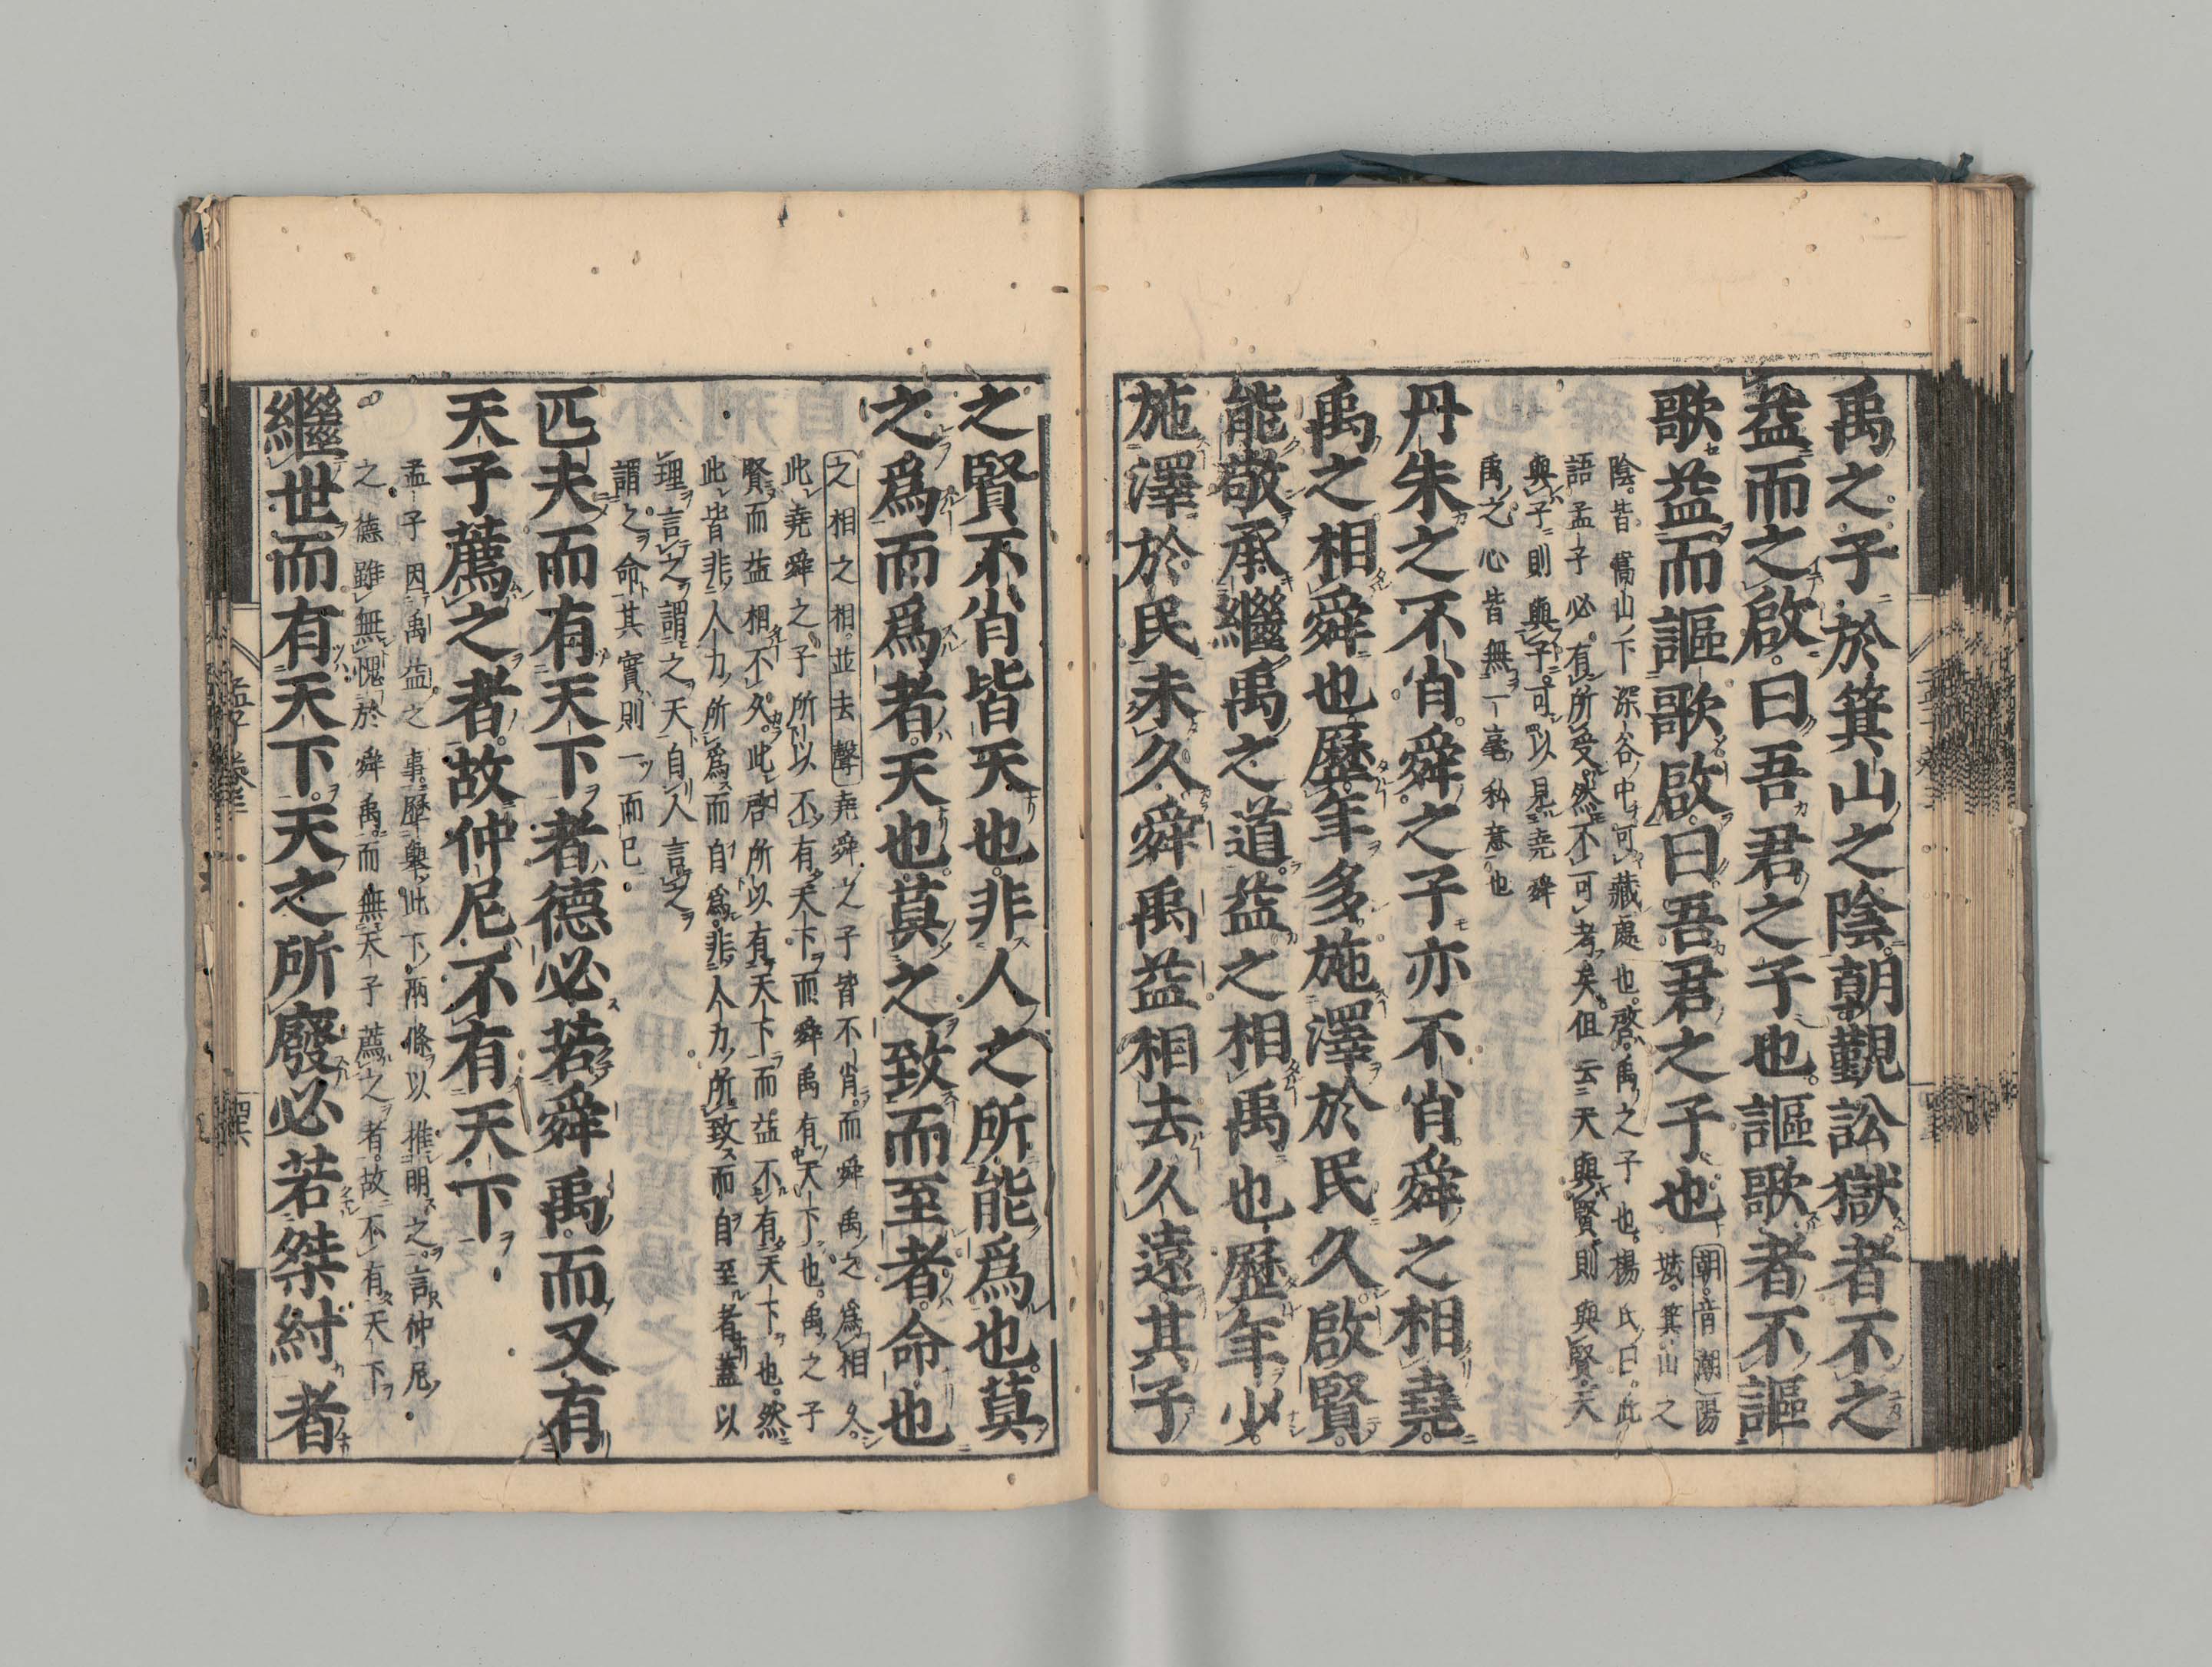 禹之子於箕山之陰朝覲訟獄者不之
益而之啟曰吾君之子也謳歌者不謳
歌益而謳歌啟曰吾君之子也
朝音潮陽
城箕山之
陰皆嵩山下深谷中可藏處也啓禹之子也楊氏曰此
語孟子必有所受然不可考矣但云天與賢則與賢天
與子則與子可以見堯舜
禹之心皆無一毫私意也
丹朱之不肖舜之子亦不肖舜之相堯
禹之相舜也歷年多施澤於民久啟賢
能敬承繼禹之道益之相禹也歷年少
施澤於民未久舜禹益相去久遠其子
之賢不肖皆天也非人之所能為也莫
之爲而爲者天也莫之致而至者命也
之相之相相並去聲堯舜之子皆不肖而舜禹之為相久
此堯舜之子所以不有天下而舜禹有天下也禹之子
賢而益相不久此啓所以有天下而益不有天下也然
此皆非人力所爲而自爲非人力所致而自至者蓋以
理言之謂之天自人言之
謂之命其實則一而已
匹夫而有天下者德必若舜禹而又有
天子薦之者故仲尼不有天下
孟子因禹益之事歷舉此下兩條以推明之言仲尼
之德雖無愧於舜禹而無天子薦之者故不有天下
繼世而有天下天之所廢必若桀紂者
孟子卷三